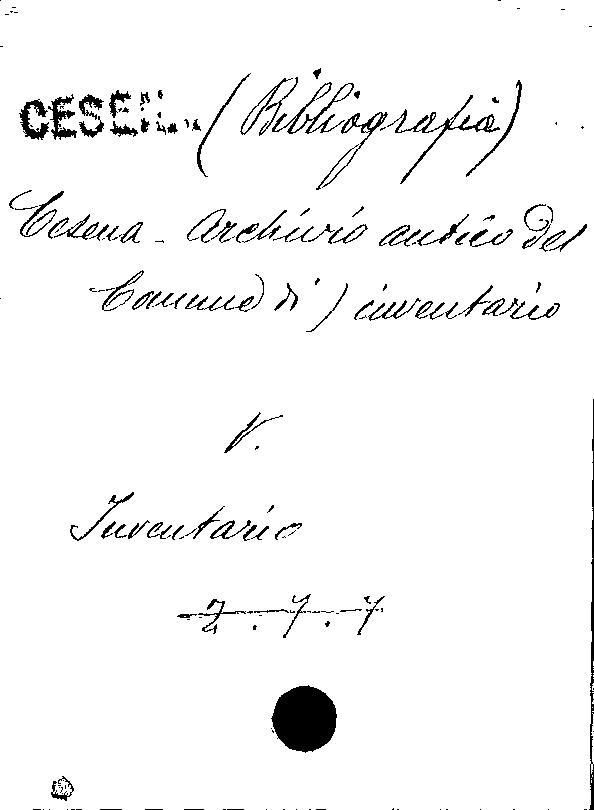 CESENA (Bibliografia)
Cesena - Archivio antico del
Comune di) inventario
V.
Inventario
2.7.7